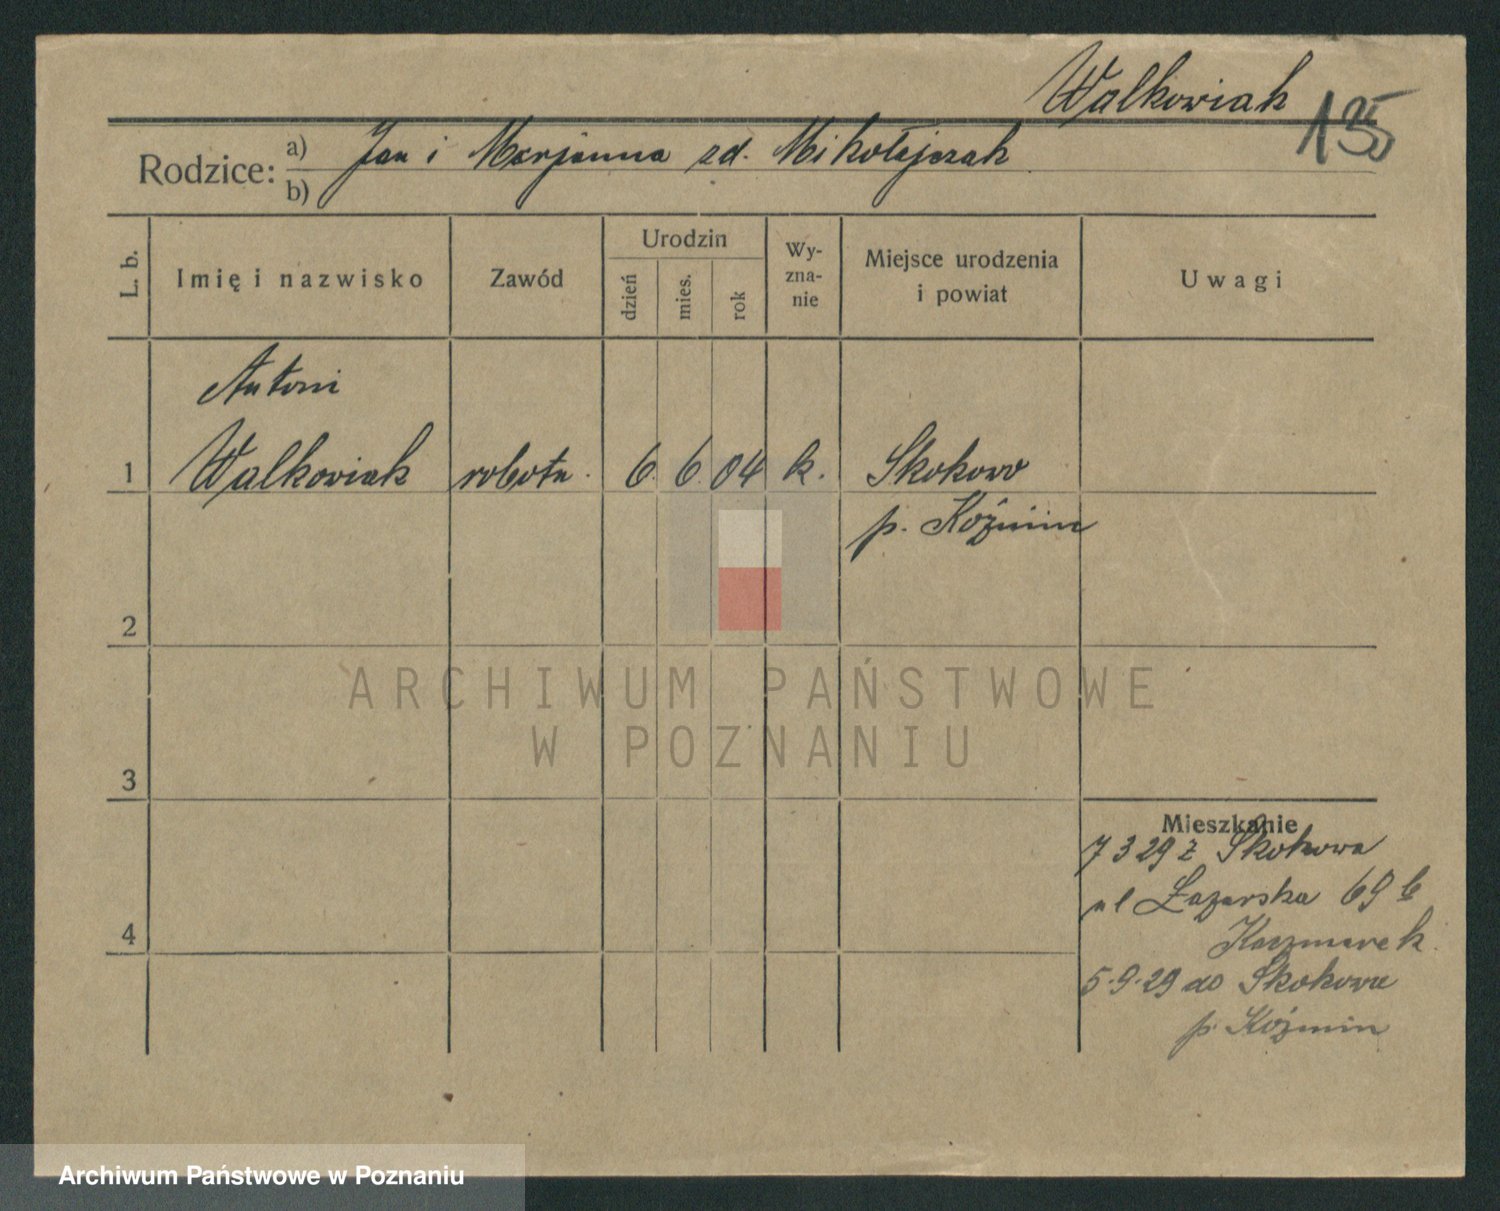 Walkowiak
135
Rodzice:
a) Jan i Marjanna zd. Mikołajczak
b)
L. b.
Imię i nazwisko
Zawód
Urodzin
dzień
mies.
rok
Wy-
zna-
nie
Miejsce urodzenia
i powiat
Uwagi
Antoni
1 Walkowiak robotn. 6. 6. 04 k. Skokowo
p. Koźmin
2
3
4
Mieszkanie
7 3 29 z Skokowa
ul Łazarska 69 b
Kaczmarek.
5.9.29 do Skokowa
p. Koźmin
ARCHIWUM PAŃSTWOWE
W POZNANIU
Archiwum Państwowe w Poznaniu